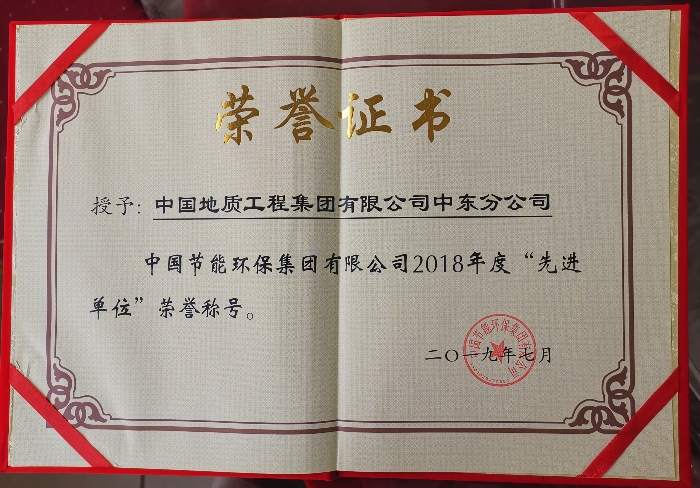 荣誉证书
授予：中国地质工程集团有限公司中东分公司
中国节能环保集团有限公司2018年度“先进
单位”荣誉称号。
中国节能环保集团有限公司
二〇一九年七月